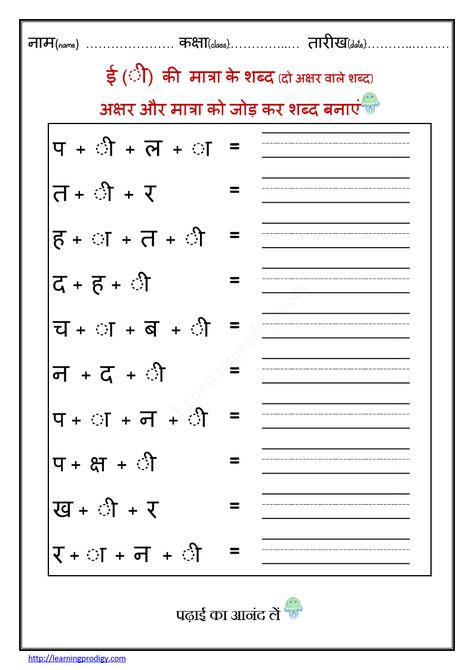 नाम(name) ..................... कक्षा(class)................ तारीख(date)................
ई (ी) की मात्रा के शब्द (दो अक्षर वाले शब्द)
अक्षर और मात्रा को जोड़ कर शब्द बनाएं
प + ी + ल + ा =
त + ी + र =
ह + ा + त + ी =
द + ह + ी =
च + ा + ब + ी =
न + द + ी =
प + ा + न + ी =
प + क्ष + ी =
ख + ी + र =
र + ा + न + ी =
Learningprodigy.com
पढ़ाई का आनंद लें
http://learningprodigy.com